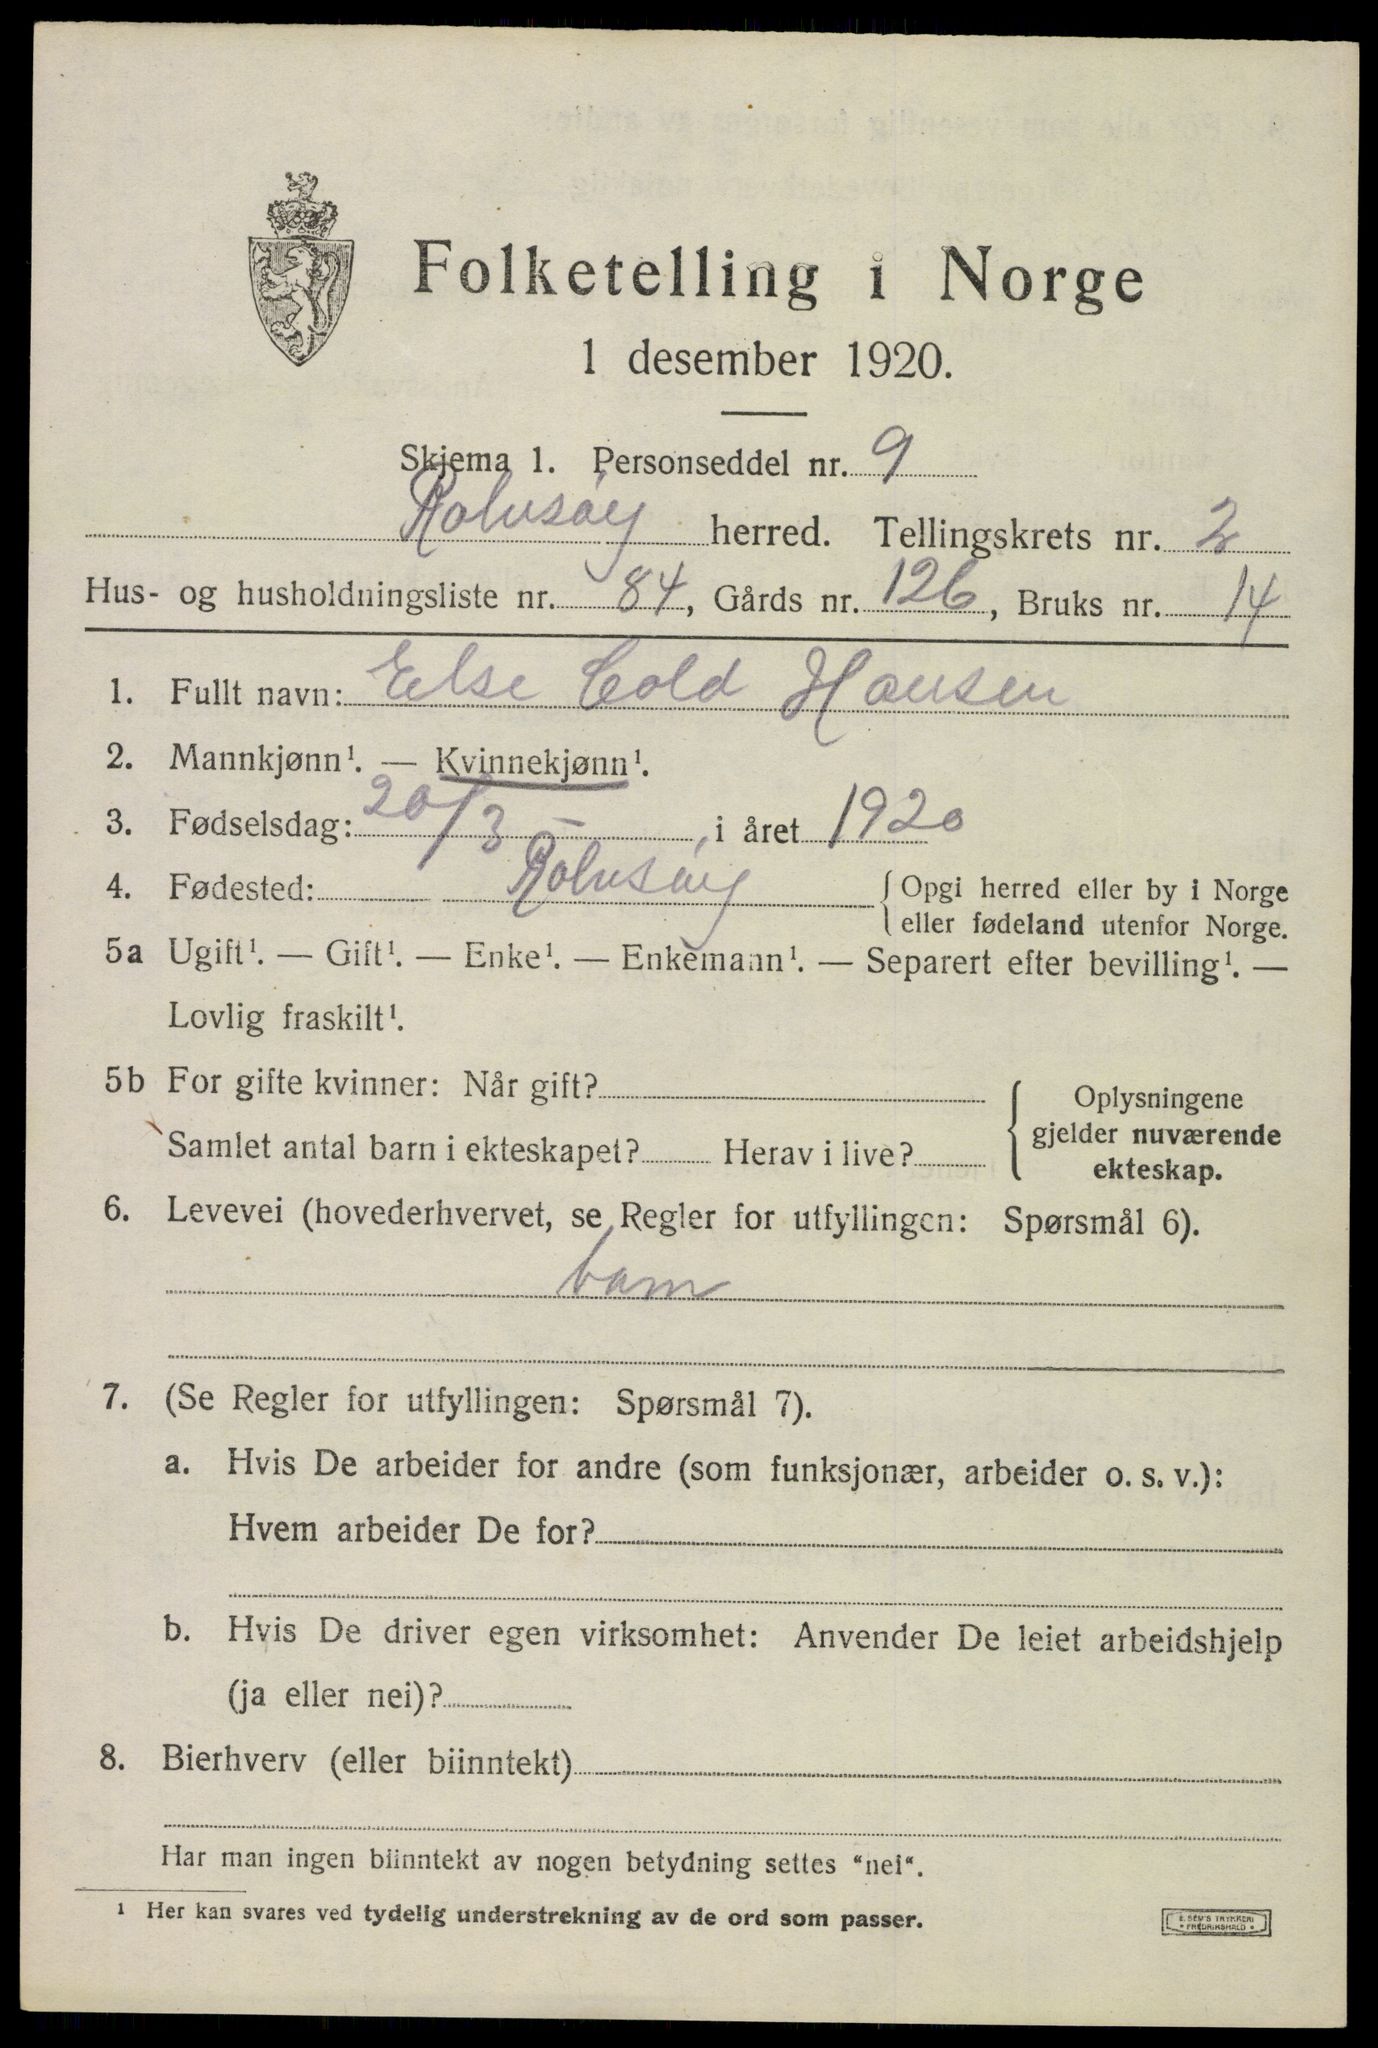 Folketelling i Norge
1 desember 1920.
Skjema 1. Personseddel nr. 9
Rolvsøy herred. Tellingskrets nr. 2
Hus- og husholdningsliste nr. 84, Gårds nr. 126, Bruks nr. 14
1. Fullt navn: Else Cold Hansen
2. Mannkjønn¹. — Kvinnekjønn¹.
3. Fødselsdag: 20/3 –, i året 1920
4. Fødested: Rolvsøy { Opgi herred eller by i Norge
eller fødeland utenfor Norge.
5a Ugift¹. — Gift¹. — Enke¹. — Enkemann¹. — Separert efter bevilling¹. —
Lovlig fraskilt¹.
5b For gifte kvinner: Når gift?
Samlet antal barn i ekteskapet? Herav i live?
{ Oplysningene
gjelder nuværende
ekteskap.
6. Levevei (hovederhvervet, se Regler for utfyllingen: Spørsmål 6).
barn
7. (Se Regler for utfyllingen: Spørsmål 7).
a. Hvis De arbeider for andre (som funksjonær, arbeider o. s. v.):
Hvem arbeider De for?
b. Hvis De driver egen virksomhet: Anvender De leiet arbeidshjelp
(ja eller nei)?
8. Bierhverv (eller biinntekt)
Har man ingen biinntekt av nogen betydning settes “nei“.
¹ Her kan svares ved tydelig understrekning av de ord som passer.
E. SEM'S TRYKKERI
• FREDRIKSHALD •